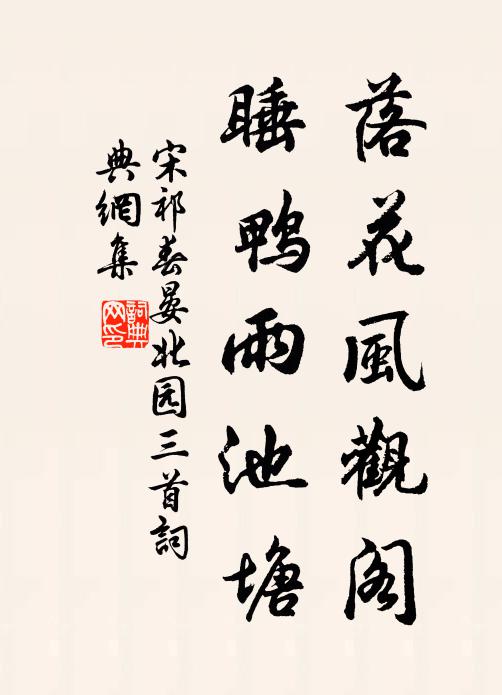 落花風觀阁
睡鴨雨池塘
宋祁春晏北园三首詞
典網集
詞典网印